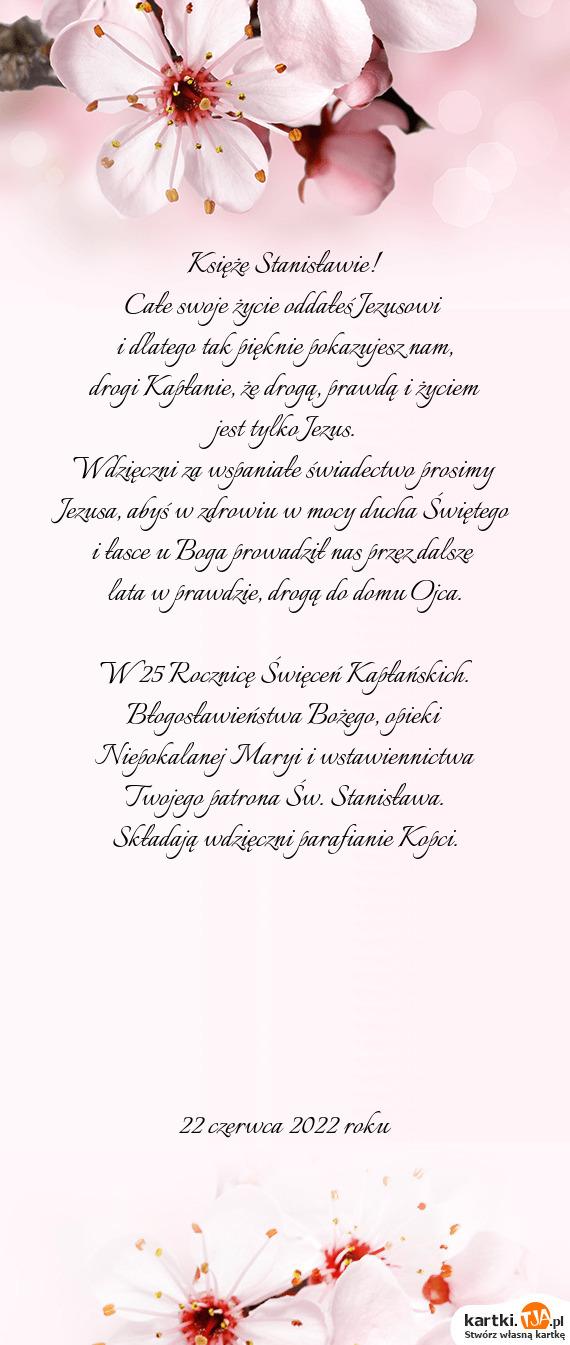 Księże Stanisławie!
Całe swoje życie oddałeś Jezusowi
i dlatego tak pięknie pokazujesz nam,
drogi Kapłanie, że drogą, prawdą i życiem
jest tylko Jezus.
Wdzięczni za wspaniałe świadectwo prosimy
Jezusa, abyś w zdrowiu w mocy ducha Świętego
i łasce u Boga prowadził nas przez dalsze
lata w prawdzie, drogą do domu Ojca.
W 25 Rocznicę Święceń Kapłańskich.
Błogosławieństwa Bożego, opieki
Niepokalanej Maryi i wstawiennictwa
Twojego patrona Św. Stanisława.
Składają wdzięczni parafianie Kopci.
22 czerwca 2022 roku
kartki.TJA.pl
Stwórz własną kartkę